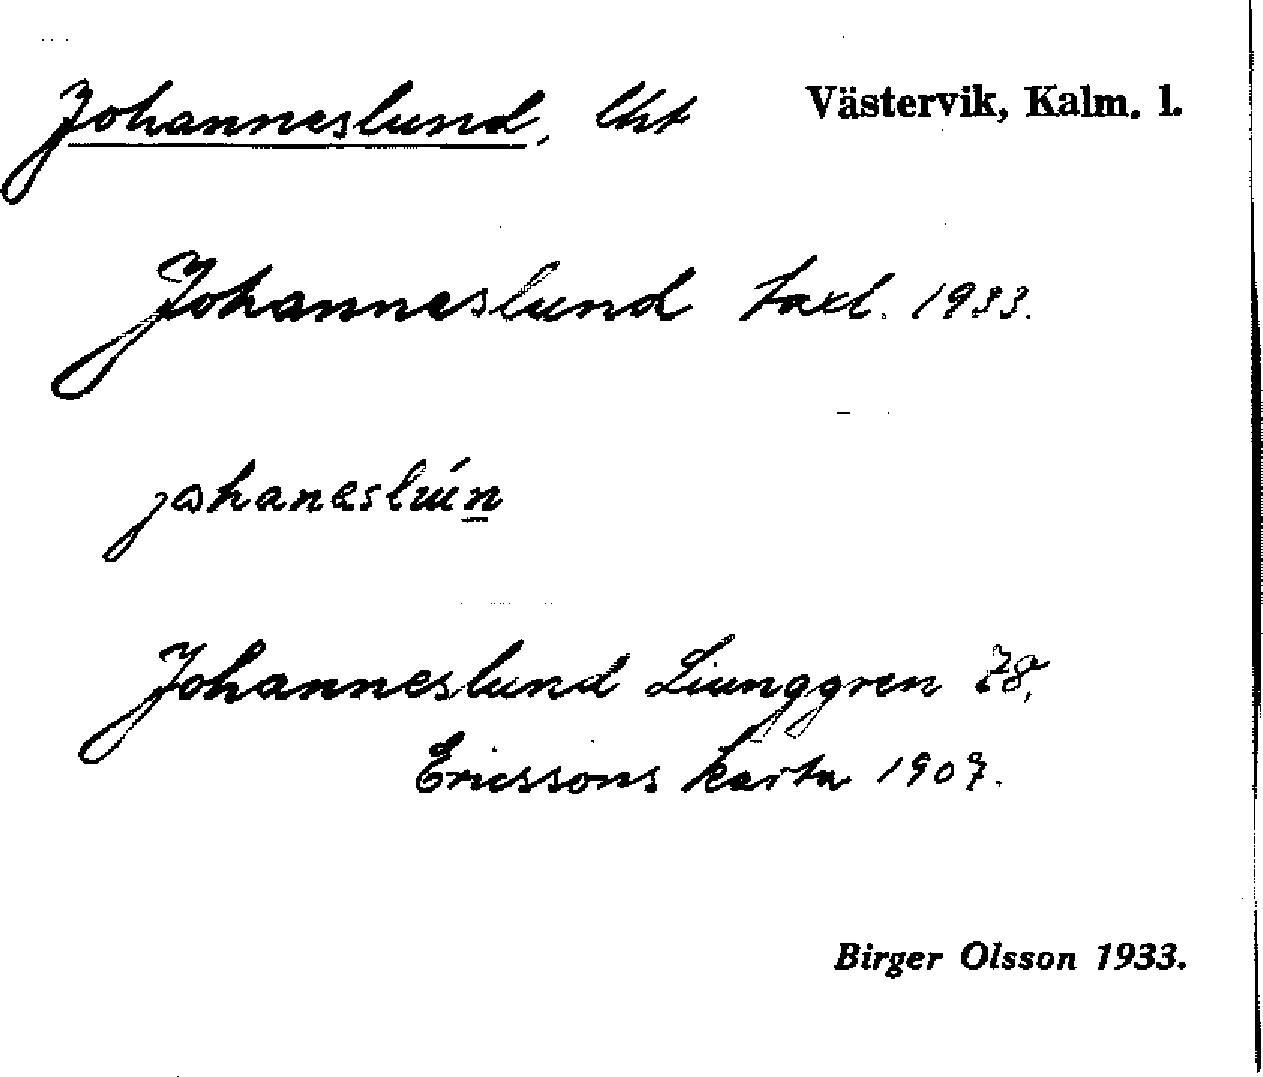 Johanneslund, Västervik, Kalm. l.
Johanneslund taxl. 1933.
johaneslún
Johanneslund Liunggren 78,
Ericssons karta 1907.
Birger Olsson 1933.